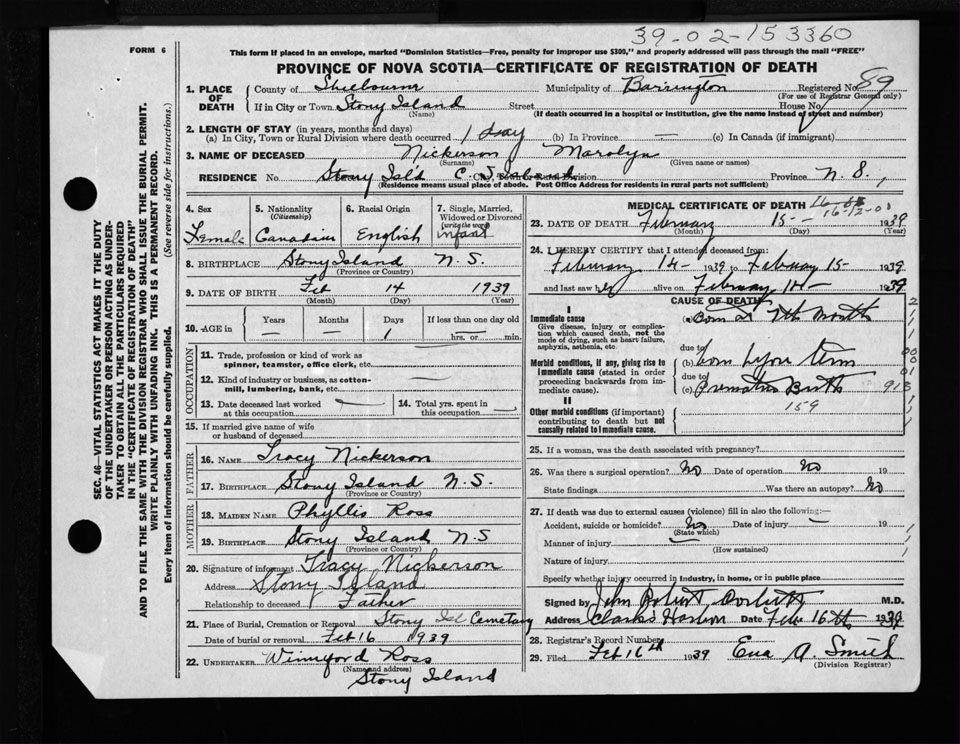 39-02-153360
FORM 6
This form if placed in an envelope, marked "Dominion Statistics—Free, penalty for improper use $300," and properly addressed will pass through the mail "FREE"
PROVINCE OF NOVA SCOTIA—CERTIFICATE OF REGISTRATION OF DEATH
1. PLACE OF DEATH County of Shelburne Municipality of Barrington Registered No. 89
(For use of Registrar General only)
If in City or Town Stony Island Street House No.
(Name) (If death occurred in a hospital or institution, give the name instead of street and number)
2. LENGTH OF STAY (in years, months and days)
(a) In City, Town or Rural Division where death occurred 1 day (b) In Province — (c) In Canada (if immigrant)
3. NAME OF DECEASED Nickerson Marolyn
(Surname) (Given name or names)
RESIDENCE No. Stony Isld C. S. Island City, Town or Rural Division Province N. S.
(Residence means usual place of abode. Post Office Address for residents in rural parts not sufficient)
SEC. 46—VITAL STATISTICS ACT MAKES IT THE DUTY
OF THE UNDERTAKER OR PERSON ACTING AS UNDER-
TAKER TO OBTAIN ALL THE PARTICULARS REQUIRED
IN THE "CERTIFICATE OF REGISTRATION OF DEATH"
AND TO FILE THE SAME WITH THE DIVISION REGISTRAR WHO SHALL ISSUE THE BURIAL PERMIT.
WRITE PLAINLY WITH UNFADING INK. THIS IS A PERMANENT RECORD.
Every item of information should be carefully supplied. (See reverse side for instructions.)
4. Sex 5. Nationality (Citizenship) 6. Racial Origin 7. Single, Married, Widowed or Divorced (write the word)
Female Canadian English infant
8. BIRTHPLACE Stony Island N. S.
(Province or Country)
9. DATE OF BIRTH Feb 14 1939
(Month) (Day) (Year)
10. AGE in Years Months Days If less than one day
— — 1 hrs. or min.
OCCUPATION
11. Trade, profession or kind of work as spinner, teamster, office clerk, etc.
12. Kind of industry or business, as cotton-mill, lumbering, bank, etc.
13. Date deceased last worked at this occupation
14. Total yrs. spent in this occupation
15. If married give name of wife or husband of deceased
FATHER
16. NAME Tracy Nickerson
17. BIRTHPLACE Stony Island N. S.
(Province or Country)
MOTHER
18. MAIDEN NAME Phyllis Ross
19. BIRTHPLACE Stony Island N. S
(Province or Country)
20. Signature of informant Tracy Nickerson
Address Stony Island
Relationship to deceased Father
21. Place of Burial, Cremation or Removal Stony Isl Cemetary
Date of burial or removal Feb 16 1939
22. UNDERTAKER Winniford Ross
(Name and address)
Stony Island
MEDICAL CERTIFICATE OF DEATH
16-12-00
23. DATE OF DEATH February 15— 1939
(Month) (Day) (Year)
24. I HEREBY CERTIFY that I attended deceased from:
February 14— 1939 to February 15— 1939
and last saw her alive on February 14— 1939
CAUSE OF DEATH
I
Immediate cause
Give disease, injury or complication which caused death, not the mode of dying, such as heart failure, asphyxia, asthenia, etc.
(a) Born at 7th month
due to
Morbid conditions, if any, giving rise to immediate cause (stated in order proceeding backwards from immediate cause).
(b) born before term
due to
(c) Premature Birth
913
159
II
Other morbid conditions (if important) contributing to death but not causally related to immediate cause.
25. If a woman, was the death associated with pregnancy?
26. Was there a surgical operation? No Date of operation No 19
State findings Was there an autopsy? No
27. If death was due to external causes (violence) fill in also the following:—
Accident, suicide or homicide? No Date of injury — 19
(State which)
Manner of injury
(How sustained)
Nature of injury
Specify whether injury occurred in industry, in home, or in public place
Signed by John Robert Corbett M.D.
Address Clarks Harbor Date Feb 16th 1939
28. Registrar's Record Number
29. Filed Feb 16th 1939 Eva A. Smith
(Division Registrar)